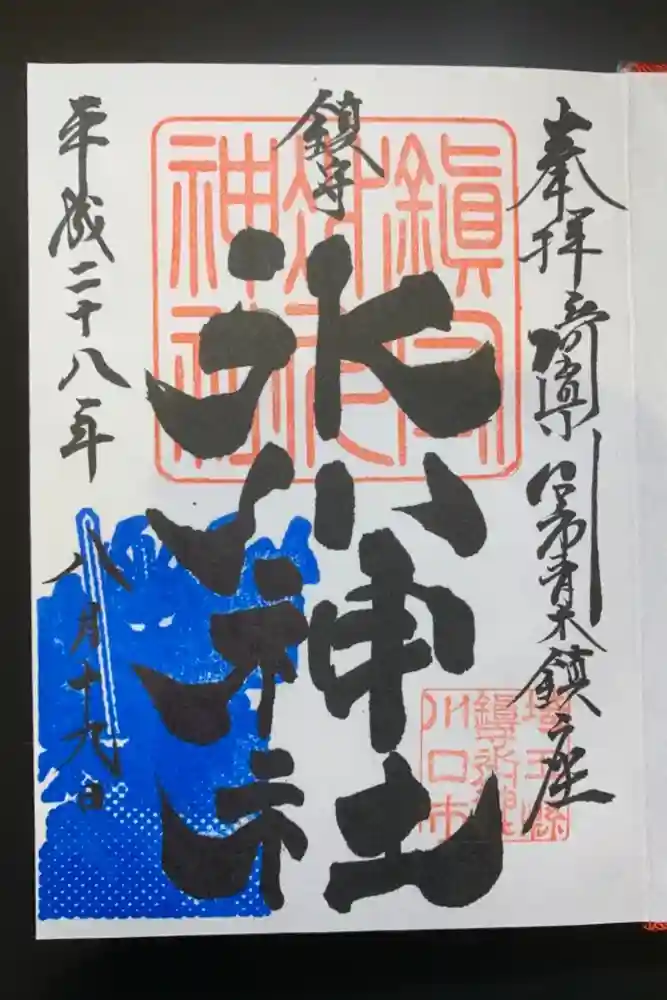 奉拝 埼玉県川口市青木鎮座
鎮守
氷川神社
平成二十八年八月十九日
鎮守氷川神社
埼玉縣
鎮守氷川神社
川口市